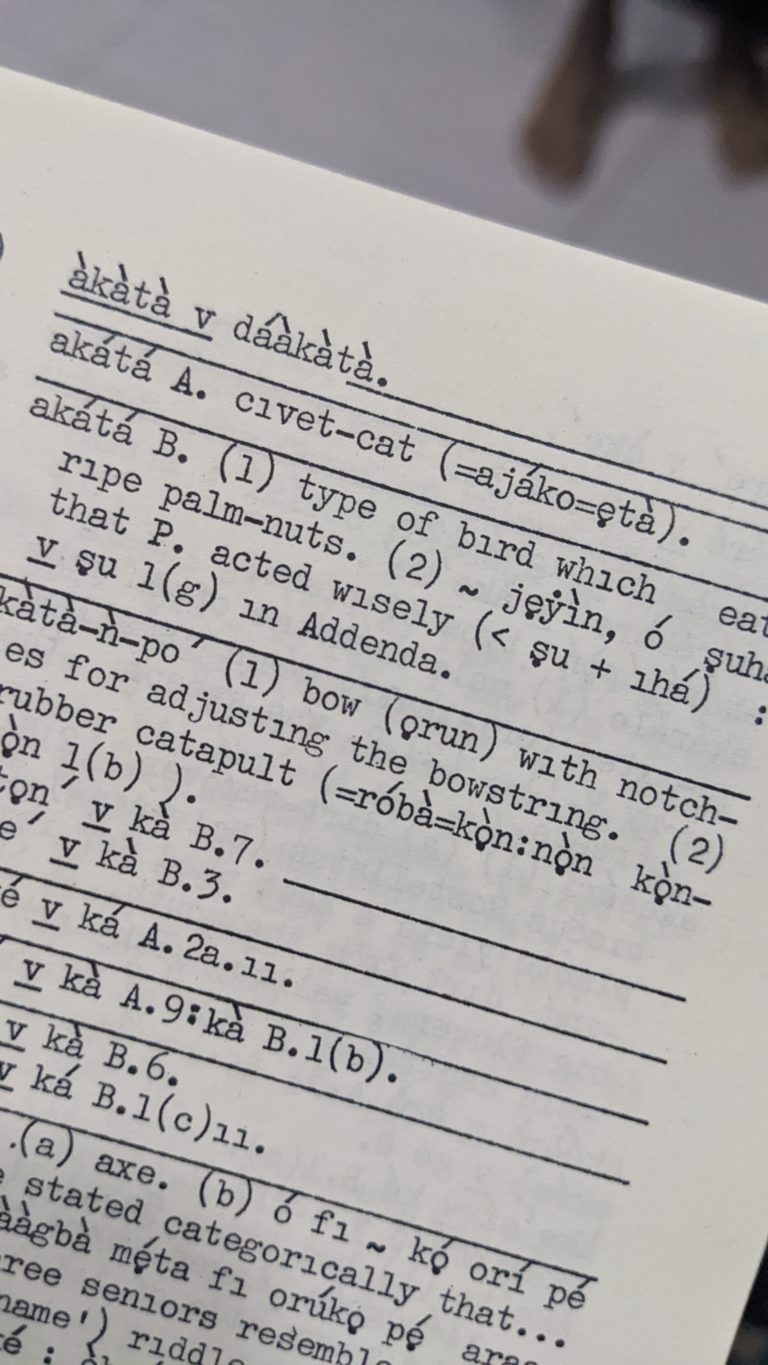 àkàtà v dáàkàtà.
akátá A. cıvet-cat (=ajáko=ẹtà).
akátá B. (1) type of bırd whıch
rıpe palm-nuts. (2) ~ jẹỳìn, ó
that P. acted wısely (< ṣu + ıhá) :
v ṣu 1(g) ın Addenda.
(1) bow (ọrun) wıth notch-
es for adjustıng the bowstrıng. (2)
rubber catapult (=róbà=kọ̀n:nọ̀n kọ̀n-
1(b) ).
v kà B.7.
v kà B.3.
v ká A.2a.ıı.
v kà A.9:kà B.1(b).
v kà B.6.
v ká B.1(c)ıı.
(a) axe. (b) ó fı ~ kọ́ orí pé
stated categorıcally that...
mẹ́ta fı orúkọ pẹ́
senıors
rıddle